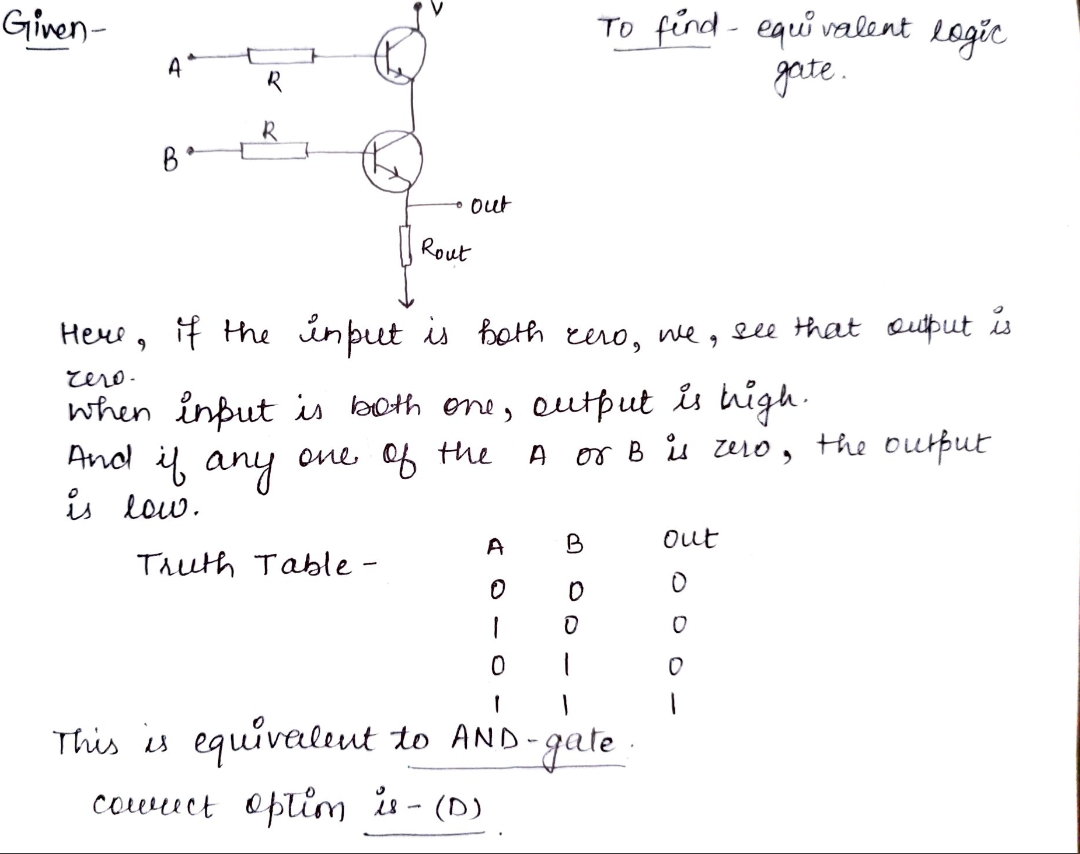 Given-
V
To find - equivalent logic
gate.
A
R
R
B
out
Rout
Here, if the input is both zero, we, see that output is
zero.
When input is both one, output is high.
And if any one of the A or B is zero, the output
is low.
Truth Table -
A B out
0 0 0
1 0 0
0 1 0
1 1 1
This is equivalent to AND-gate.
correct option is - (D).